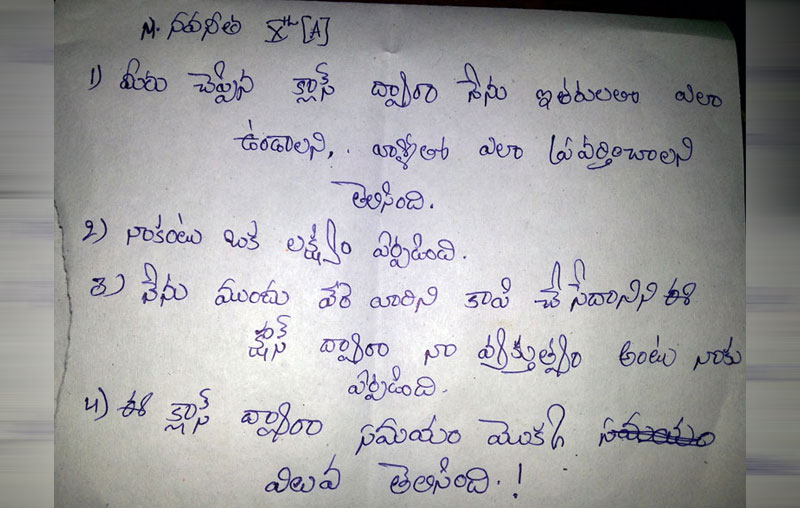 M. నవనీత 8th [A]
1) మీరు చెప్పిన క్లాస్ ద్వారా నేను ఇతరులతా ఎలా
ఉండాలని, . వాళ్ళతో ఎలా ప్రవర్తించాలని
తెలిసింది.
2) నాకంటు ఒక లక్ష్యం ఏర్పడింది.
3) నేను ముందు వేరె వారిని కాపి చేసేదానిని ఈ
క్లాస్ ద్వారా నా వ్యక్తిత్వం అంటు నాకు
ఏర్పడింది.
4) ఈ క్లాస్ ద్వారా సమయం మొక్క సమయం
విలువ తెలిసింది.!